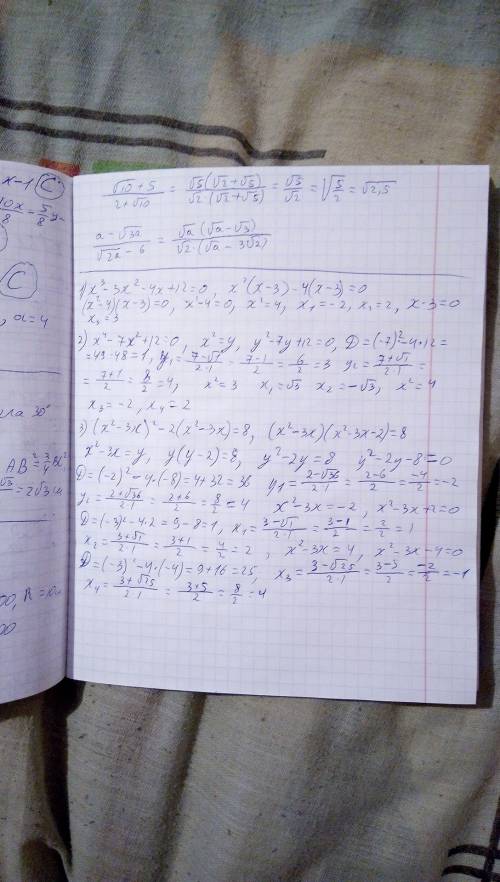 x-1 C
10x/8 = 5/8 y-
C
, a=4
ла 30°
AB² = 3/4
√3 = 2√3
00, R = 10
00
(√10 + 5)/(2+√10) = (√5(√2+√5))/(√2(√2+√5)) = √5/√2 = √(5/2) = √2,5
(a-√3a)/(√2a - 6) = (√a(√a-√3))/(√2·(√a-3√2))
1) x³-3x²-4x+12=0, x²(x-3)-4(x-3)=0
(x²-4)(x-3)=0, x²-4=0, x²=4, x₁=-2, x₂=2, x-3=0
x₃=3
2) x⁴-7x²+12=0, x²=y, y²-7y+12=0, D=(-7)²-4·12=
=49-48=1, y₁=(7-√1)/(2·1)=(7-1)/2=6/2=3 y₂=(7+√1)/(2·1)=
=(7+1)/2=8/2=4, x²=3 x₁=√3 x₂=-√3, x²=4
x₃=-2, x₄=2
3) (x²-3x)²-2(x²-3x)=8, (x²-3x)(x²-3x-2)=8
x²-3x=y, y(y-2)=8, y²-2y=8 y²-2y-8=0
D=(-2)²-4·(-8)=4+32=36 y₁=(2-√36)/(2·1)=(2-6)/2=-4/2=-2
y₂=(2+√36)/(2·1)=(2+6)/2=8/2=4 x²-3x=-2, x²-3x+2=0
D=(-3)²-4·2=9-8=1, x₁=(3-√1)/(2·1)=(3-1)/2=2/2=1
x₂=(3+√1)/(2·1)=(3+1)/2=4/2=2, x²-3x=4, x²-3x-4=0
D=(-3)²-4·(-4)=9+16=25, x₃=(3-√25)/(2·1)=(3-5)/2=-2/2=-1
x₄=(3+√25)/(2·1)=(3+5)/2=8/2=4